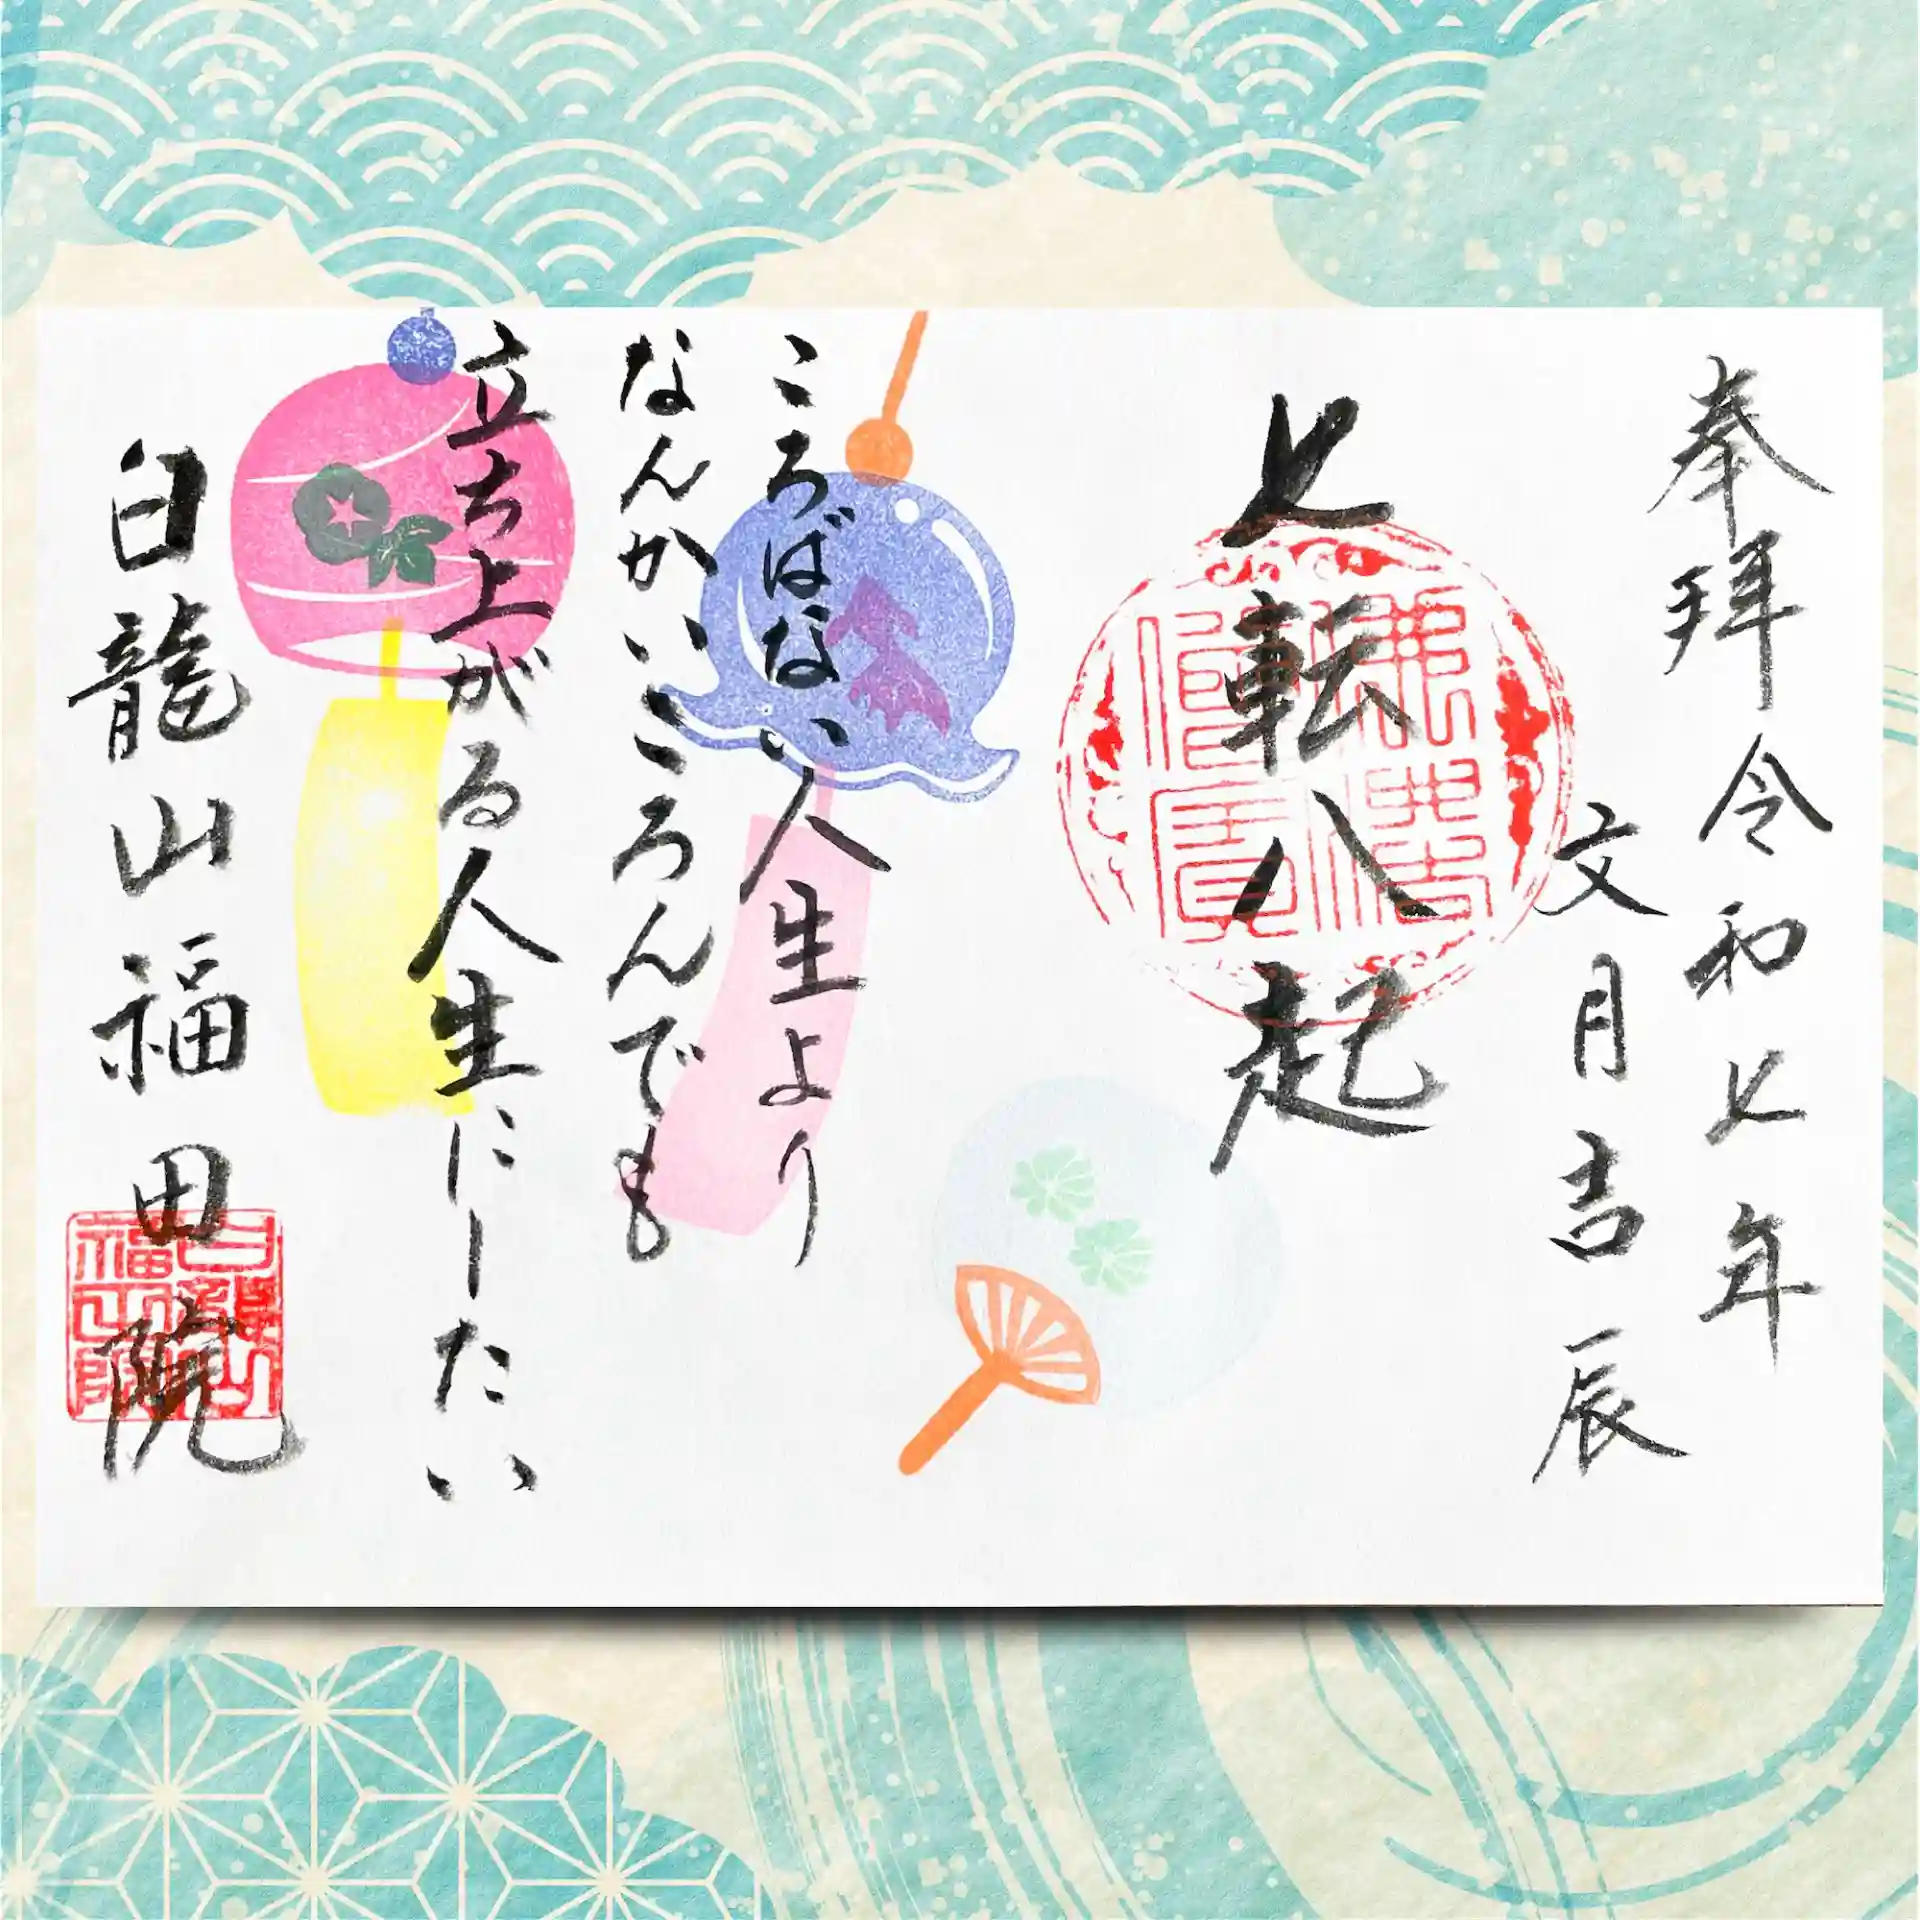 奉拝
令和七年
文月吉辰
七転八起
ころばない人生より
なんかいころんでも
立ち上がる人生にしたい
白龍山福田院
佛法僧寳
白龍山福田院